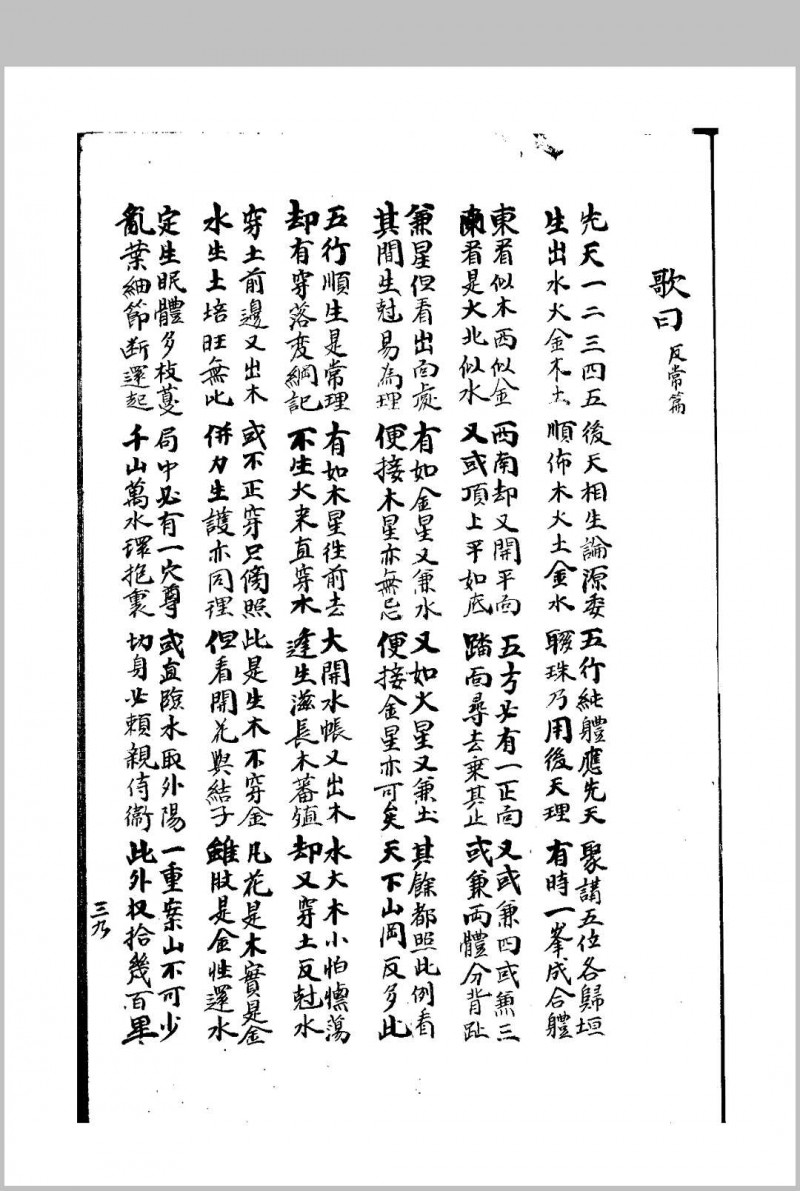 歌曰 反常篇
先天一二三四五 後天相生論源委 五行純體應先天 聚講五位各歸垣
生出水火金木土 順佈木火土金水 聯珠乃用後天理 有時一峯成合體
東看似木西似金 西南却又開平面 五方必有一正面 又或兼四或兼三
南看是火北似水 又或頂上平如底 踏面尋去棄其止 或兼兩體分背趾
兼星但看出面處 有如金星又兼水 又如火星又兼土 其餘都照此例看
其間生尅易為理 便接木星亦無忌 便接金星亦可矣 天下山岡反多此
五行順生是常理 有如木星徃前去 大開水帳又出木 水大木小怕懷蕩
却有穿落变綱記 不生火来直穿木 逢生滋長木蕃殖 却又穿土反尅水
穿土前邊又出木 或不正穿只傍照 此是生木不穿金 凡花是木實是金
水生土培旺無比 併力生護亦同理 但看開花與結子 雖肢是金性還水
定生眠體多枝蔓 局中必有一穴尊 或宜臨水取外陽 一重案山不可少
亂葉紬節断還起 千山萬水環抱裏 切身必頼親侍衞 此外权拾幾百里
三九